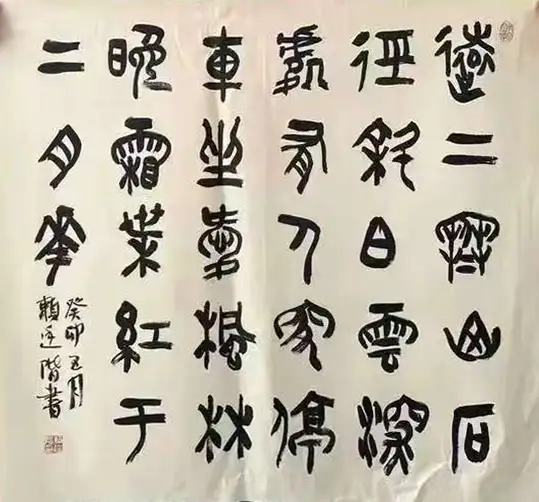 遠上寒山石
徑斜白雲深
處有人家停
車坐愛楓林
晚霜葉紅于
二月華
癸卯五月
賴廷階書